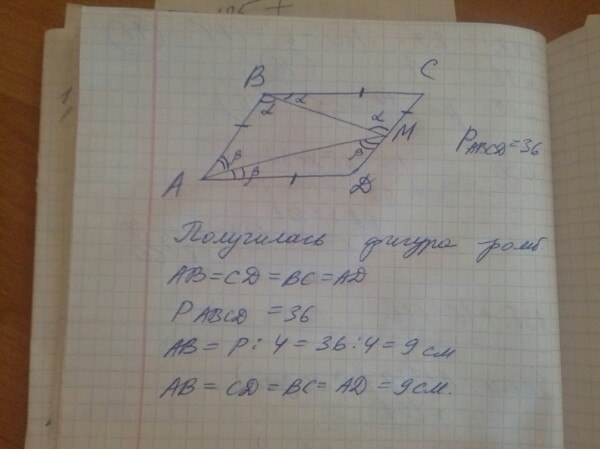 B C
α α α
M
β
β β
A D
P ABCD = 36
Получилась фигура ромб
AB = CD = BC = AD
P ABCD = 36
AB = P : 4 = 36 : 4 = 9 см
AB = CD = BC = AD = 9 см.